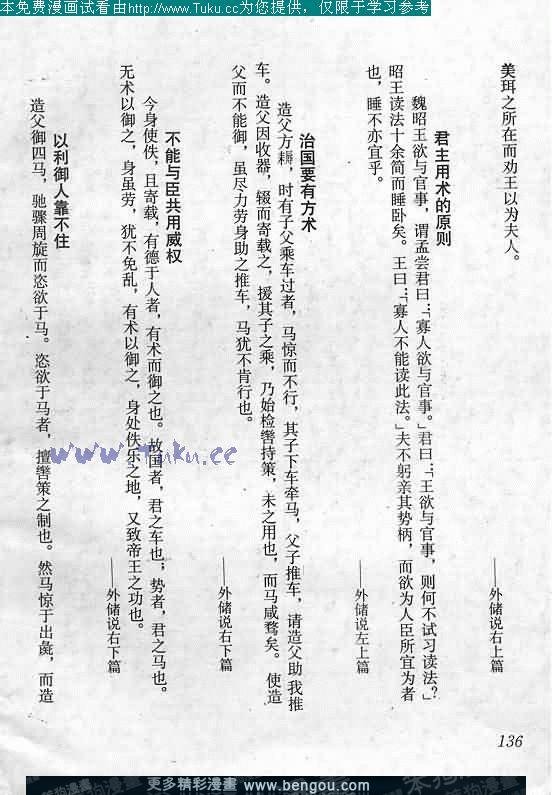 本免费漫画试看由http://www.Tuku.cc为您提供，仅限于学习参考
美珥之所在而劝王以为夫人。
——外储说右上篇
君主用术的原则
魏昭王欲与官事，谓孟尝君曰：「寡人欲与官事。」君曰：「王欲与官事，则何不试习读法？」
昭王读法十余简而睡卧矣。王曰：「寡人不能读此法。」夫不躬亲其势柄，而欲为人臣所宜为者
也，睡不亦宜乎。
——外储说左上篇
治国要有方术
造父方耨，时有子父乘车过者，马惊而不行，其子下车牵马，父子推车，请造父助我推
车。造父因收器，辍而寄载之，援其子之乘，乃始检辔持策，未之用也，而马咸骛矣。使造
父而不能御，虽尽力劳身助之推车，马犹不肯行也。
——外储说右下篇
不能与臣共用威权
今身使佚，且寄载，有德于人者，有术而御之也。故国者，君之车也；势者，君之马也。
无术以御之，身虽劳，犹不免乱，有术以御之，身处佚乐之地，又致帝王之功也。
——外储说右下篇
以利御人靠不住
造父御四马，驰骤周旋而恣欲于马。恣欲于马者，擅辔策之制也。然马惊于出彘，而造
www.Tuku.cc
136
更多精彩漫畫 www.bengou.com